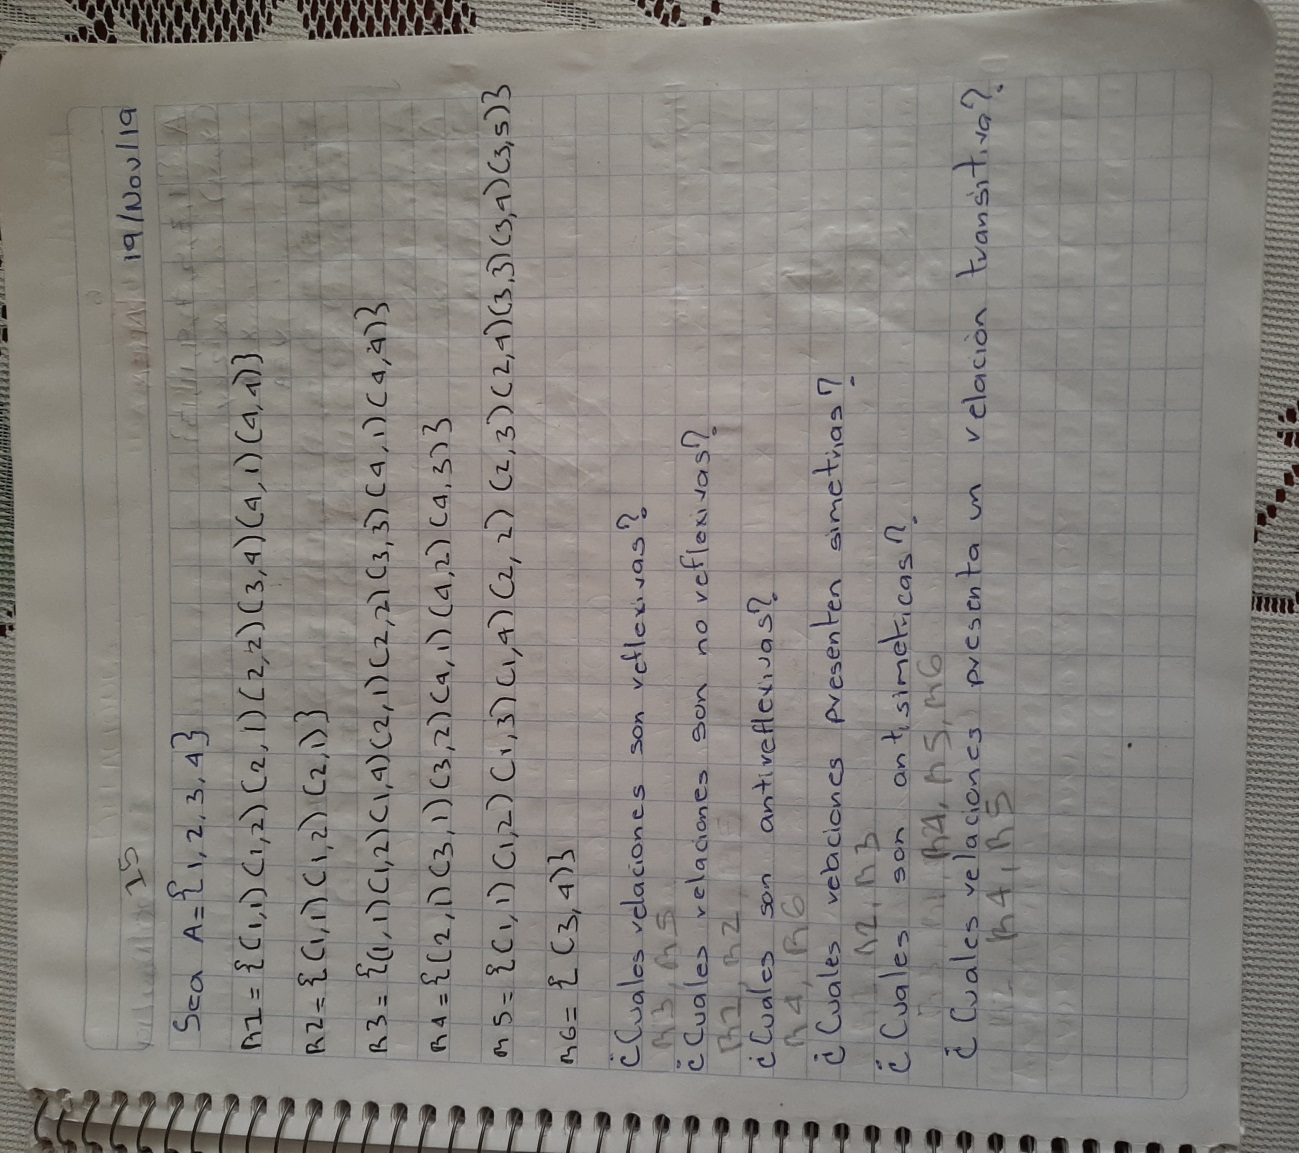 19/Nov/19
15
Sea A={1,2,3,4}
R1={(1,1)(1,2)(2,1)(2,2)(3,4)(4,1)(4,4)}
R2={(1,1)(1,2)(2,1)}
R3={(1,1)(1,2)(1,4)(2,1)(2,2)(3,3)(4,1)(4,4)}
R4={(2,1)(3,1)(3,2)(4,1)(4,2)(4,3)}
R5={(1,1)(1,2)(1,3)(1,4)(2,2)(2,3)(2,4)(3,3)(3,4)(3,5)}
R6={(3,4)}
¿Cuales relaciones son reflexivas?
R3, R5
¿Cuales relaciones son no reflexivas?
R1, R2
¿Cuales son antireflexivas?
R4, R6
¿Cuales relaciones presenten simetrias?
R2, R3
¿Cuales son antisimetricas?
R4, R5, R6
¿Cuales relaciones presenta un relación transitiva?
R4, R5